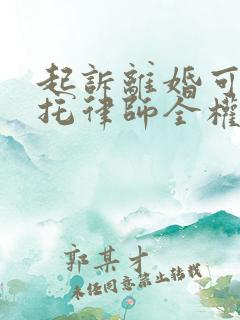 起訴離婚可
托律師全權
郭某才
未经同意禁止转载